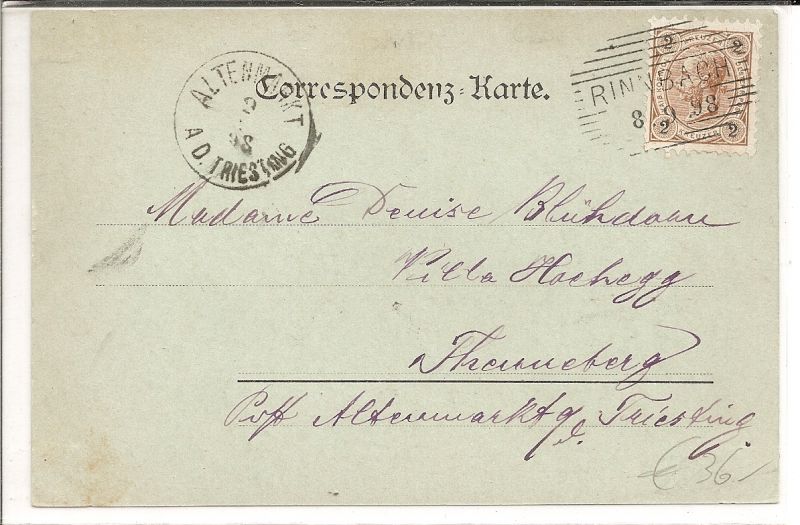 Correspondenz-Karte.
ALTENMARKT
A D. TRIESTING
RINNBACH
8 9 98
2 2
KREUZER
2 2
Madame Denise Blühdorn
Villa Hochegg
Thanneberg
Post Altenmarkt a. d. Triesting
€ 36.-